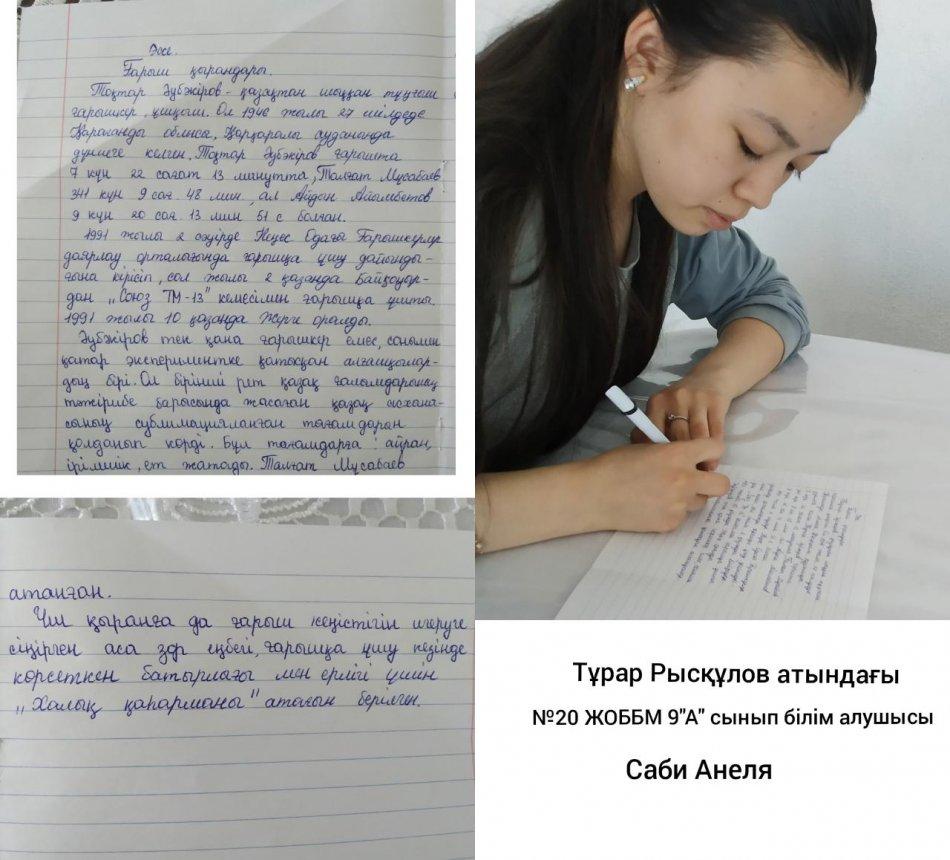 Эссе.
Ғарыш қырандары.
Тоқтар Әубәкіров - қазақтан шыққан тұңғыш
ғарышкер, ұшқыш. Ол 1946 жылы 27 шілдеде
Қарағанды облысы, Қарқаралы ауданында
дүниеге келген. Тоқтар Әубәкіров ғарышта
7 күн 22 сағат 13 минутта, Талғат Мұсабаев
341 күн 9 сағ. 48 мин., ал Айдын Айымбетов
9 күн 20 сағ 13 мин 51 с болған.
1991 жылы 2 сәуірде Кеңес Одағы Ғарышкерлер
даярлау орталығында ғарышқа ұшу дайынды-
ғына кірісіп, сол жылы 2 қазанда Байқоңыр-
дан „Союз ТМ-13" кемесімен ғарышқа ұшты.
1991 жылы 10 қазанда Жерге оралды.
Әубәкіров тек қана ғарышкер емес, сонымен
қатар экспериментке қатысқан алғашқылар-
дың бірі. Ол бірінші рет қазақ ғалымдарының
тәжірибе барысында жасаған қазақ асхана-
сының сублимацияланған тағамдарын
қолданып көрді. Бұл тағамдарға: айран,
ірімшік, ет жатады. Талғат Мұсабаев
атанған.
Үш қыранға да ғарыш кеңістігін игеруге
сіңірген аса зор еңбегі, ғарышқа ұшу кезінде
көрсеткен батырлығы мен ерлігі үшін
„Халық қаһарманы" атағын берілген.
Тұрар Рысқұлов атындағы
№20 ЖОББМ 9"А" сынып білім алушысы
Саби Анеля